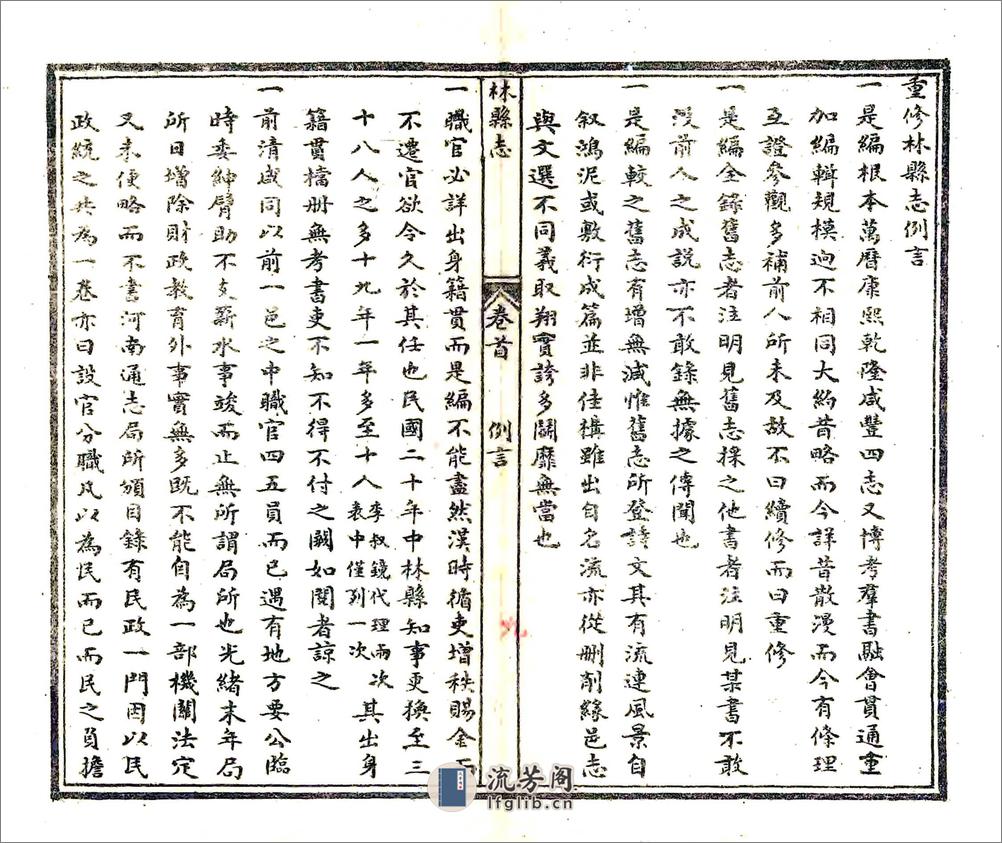 重修林縣志例言
一是編根本萬曆康熙乾隆咸豐四志又博考羣書融會貫通重
加編輯規模迥不相同大約昔略而今詳昔散漫而今有條理
互證參觀多補前人所未及故不曰續修而曰重修
一是編全錄舊志者注明見舊志採之他書者注明見某書不敢
沒前人之成說亦不敢錄無據之傳聞也
一是編較之舊志有增無減惟舊志所登詩文其有流連風景自
叙鴻泥或敷衍成篇並非佳構雖出自名流亦從刪削緣邑志
與文選不同義取翔實誇多鬭靡無當也
林縣志
卷首
例言
九
一職官必詳出身籍貫而是編不能盡然漢時循吏增秩賜金而
不遷官欲令久於其任也民國二十年中林縣知事更換至三
十八人之多十九年一年多至十八李叔鏡代理兩次表中僅列一次其出身
籍貫檔册無考書吏不知不得不付之闕如閱者諒之
一前清咸同以前一邑之中職官四五員而已遇有地方要公臨
時委紳臂助不支薪水事竣而止無所謂局所也光緒末年局
所日增除財政教育外事實無多既不能自為一部機關法定
又未便略而不書河南通志局所頒目錄有民政一門因以民
政統之共為一卷亦曰設官分職凡以為民而已而民之負擔
流芳阁
lfglib.cn